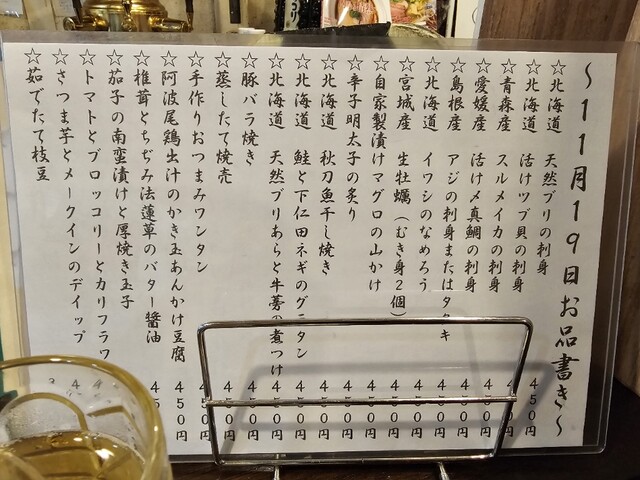 ～11月19日お品書き～
☆北海道 天然ブリの刺身 450円
☆北海道 活けツブ貝の刺身
☆青森産 スルメイカの刺身 450円
☆愛媛産 活け〆真鯛の刺身 450円
☆島根産 アジの刺身またはタタキ 450円
☆北海道 イワシのなめろう 450円
☆宮城産 生牡蠣（むき身2個） 450円
☆自家製漬けマグロの山かけ 450円
☆辛子明太子の炙り 450円
☆北海道 秋刀魚干し焼き 450円
☆北海道 鮭と下仁田ネギのグラタン 450円
☆北海道 天然ブリあらと牛蒡の煮つけ 450円
☆豚バラ焼き 450円
☆蒸したて焼売 450円
☆手作りおつまみワンタン 450円
☆阿波尾鶏出汁のかき玉あんかけ豆腐 450円
☆椎茸とちぢみ法蓮草のバター醤油 450円
☆茄子の南蛮漬けと厚焼き玉子
☆トマトとブロッコリーとカリフラワ
☆さつま芋とメークインのディップ
☆茹でたて枝豆